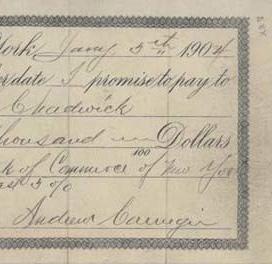 York Jany 5th 1904
er date I promise to pay to
Chadwick
housand Dollars
100
k of Commerce of New Yor
5 %
Andrew Carnegie